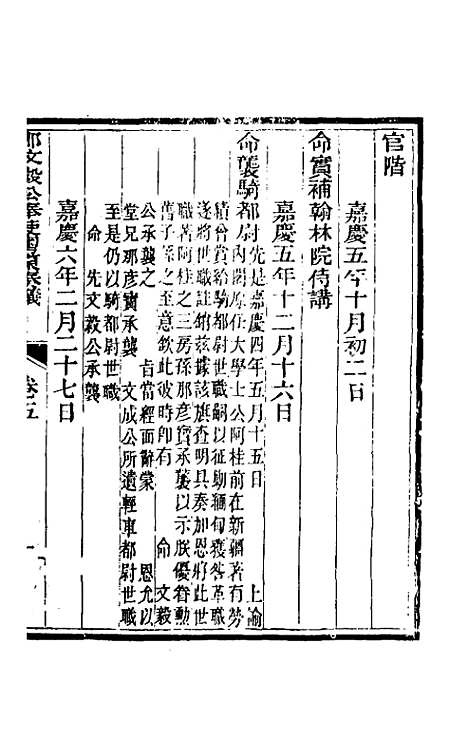 官階
嘉慶五年十月初二日
命實補翰林院侍講
嘉慶五年十二月十六日
命襲騎都尉先是嘉慶四年五月十五日　上諭
內閣原任大學士公阿桂前在新疆著有勞
績曾賞給騎都尉世職嗣以征勦緬甸獲咎革職
遂將世職註銷該據該旗查明具奏加恩將此世
職著阿桂之三房孫那彥寶承襲以示朕優眷勳
舊子孫之至意欽此彼時卽有　命　文毅
公承襲之　旨當經面辭蒙　恩允以
堂兄那彥寶承襲　文成公所遺輕車都尉世職
至是仍以騎都尉世職
命　先文毅公承襲
嘉慶六年二月二十七日
那文毅公奉使
卷五